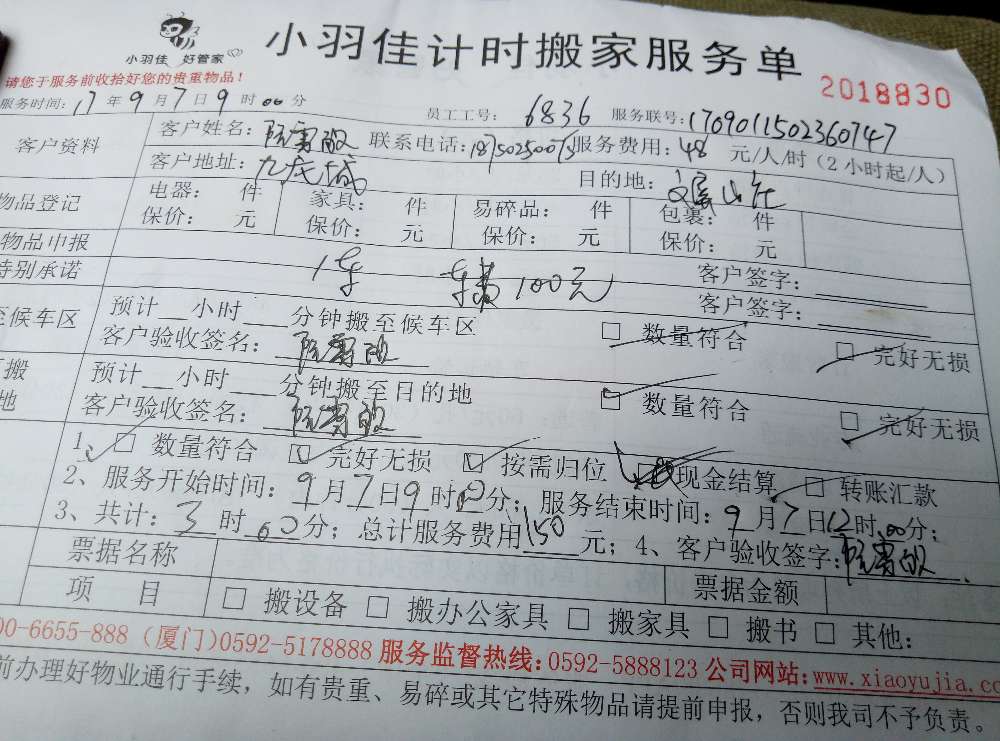 小羽佳 好管家
小羽佳计时搬家服务单
2018830
请您于服务前收拾好您的贵重物品!
服务时间: 17 年 9 月 7 日 9 时 00 分 员工工号: 6836 服务联号: 1709011502360747
客户资料 客户姓名: 联系电话: 服务费用: 48 元/人/时 (2 小时起/人)
客户地址: 九龙城 目的地:
物品登记 电器: 件 家具: 件 易碎品: 件 包裹: 件
保价: 元 保价: 元 保价: 元 保价: 元
物品申报 客户签字:
特别承诺 1车 100元 客户签字:
至候车区 预计__小时___分钟搬至候车区 □ 数量符合 □ 完好无损
客户验收签名:
搬 预计__小时___分钟搬至目的地 □ 数量符合 □ 完好无损
地 客户验收签名:
1、□ 数量符合 □ 完好无损 □ 按需归位 □ 现金结算 □ 转账汇款
2、服务开始时间: 9 月 7 日 9 时 分; 服务结束时间: 9 月 7 日 12 时 00 分;
3、共计: 3 时 00 分; 总计服务费用 150 元; 4、客户验收签字:
票据名称 票据金额
项 目 □ 搬设备 □ 搬办公家具 □ 搬家具 □ 搬书 □ 其他:
00-6655-888 (厦门)0592-5178888 服务监督热线:0592-5888123 公司网站:www.xiaoyujia.co
前办理好物业通行手续,如有贵重、易碎或其它特殊物品请提前申报,否则我司不予负责。